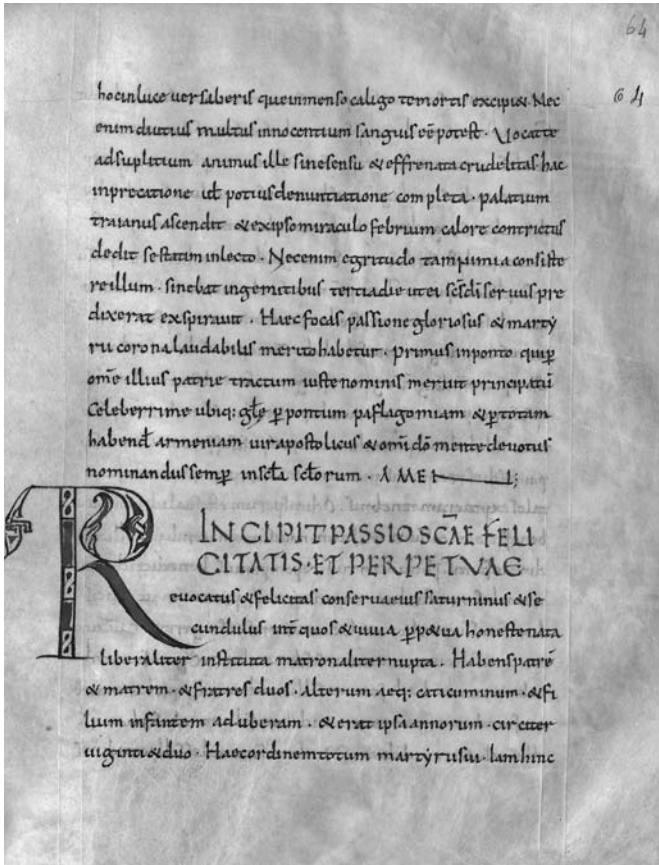 64
64
hocinluce uersaberis queinmenso caligo temortis excipi&. Nec
enim diutius multus innocentium sanguis eē potest. Vocatte
adsuplitium animus ille sinesensu & effrenata crudelitas hac
inprecatione id potius denuntiatione completa. palatium
traianus ascendit & exipso miraculo febrium calore contrictus
dedit sestatim inlecto. Nec enim egritudo tam
reillum. sinebat ingemitibus tertiadie utei sc̄sdī seruus pre
dixerat exspirauit. Haec focas passione gloriosus & martẏ
rii corona laudabilis merito habetur. primus inponto quip̄
om̄e illius patrie tractum iuste nominis meruit principatū
Celeberrime ubiq: p̄ pontum paflagoniam & p̄ totam
habend̄ armeniam uirapostolicus & om̄i dō mente deuotus
nominandus semp̄ insc̄la sc̄lorum. AMEN;
R INCIPIT PASSIO SCĀE FELI
CITATIS·ET PERPETVAE
euocatus & felicitas conserua eius saturninus & se
cundulus int̄ quos & uiuia p̄p&ua honestenata
liberaliter instituta matronaliter nupta. Habens patrē
& matrem. & fratres duos. alterum aeq: caticuminum. & fi
lium infantem aduberam. & erat ipsa annorum. circiter
uiginti & duo. Haec ordinem totum martẏrii sui. Iam hinc